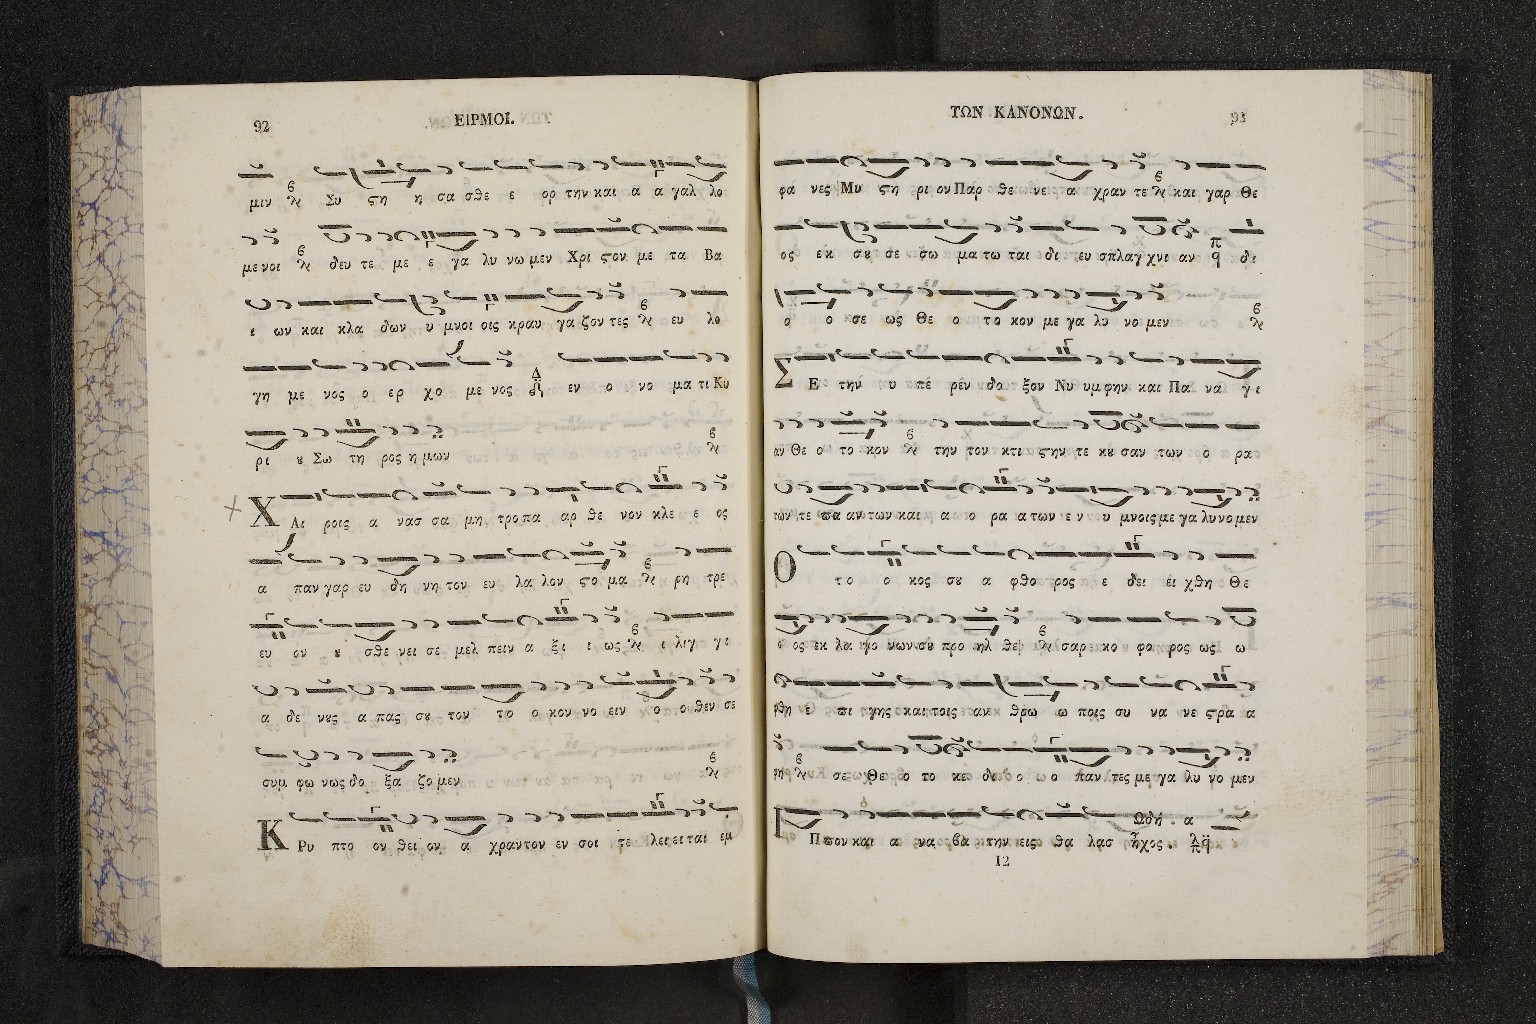 92 ΕΙΡΜΟΙ.
μιν Συ ϛη η σα σθε ε ορ την και α α γαλ λο
με νοι δευ τε με ε γα λυ νω μεν Χρι ϛον με τα Βα
ι ων και κλα δων υ μνοι οις κραυ γα ζον τες ευ λο
γη με νος ο ερ χο με νος εν ο νο μα τι Κυ
ρι ȣ Σω τη ρος η μων
Χ Αι ροις α νασ σα μη τρο πα αρ θε νον κλε ε ος
α παν γαρ ευ δη νη τον ευ λα λον ϛο μα ρη τρε
ευ ον ȣ σθε νει σε μελ πειν α ξι ι ως ι λιγ γι
α δε νȣς α πας σȣ τον το ο κον νο ειν ο ο θεν σε
συμ φω νως δο ξα ζο μεν
Κ Ρυ πτο ον θει ον α χραντον εν σοι τε λει ει ται εμ
ΤΩΝ ΚΑΝΟΝΩΝ. 93
φα νες Μυ ϛη ρι ον Παρ θε νε α χραν τε και γαρ Θε
ος εκ σȣ σε σω μα τω ται δι ευ σπλαγ χνι αν δι
ο ο σε ως Θε ο το κον με γα λυ νο μεν
Σ Ε την υ πέ ρέν δο ξον Νυ υμ φην και Πα να γι
αν Θε ο το κον την τον κτι ϛην τε κȣ σαν των ο ρα
των τε πα αν των και α ο ρα α των ε ν υ μνοις με γα λυ νο μεν
Ο το ο κος σȣ α φθο ρος ε δει ει χθη Θε
ο ος εκ λα γο νων σȣ προ ηλ θε σαρ κο φο ρος ως ω
φθη ε πι γης και τοις αν θρω ω ποις συ να νε ϛρα α
φη σε Θε ο το κε δι ο ο παν τες με γα λυ νο μεν
Ωδή . α
Ι Ππον και α να βα την εις θα λασ ἦχος .
12